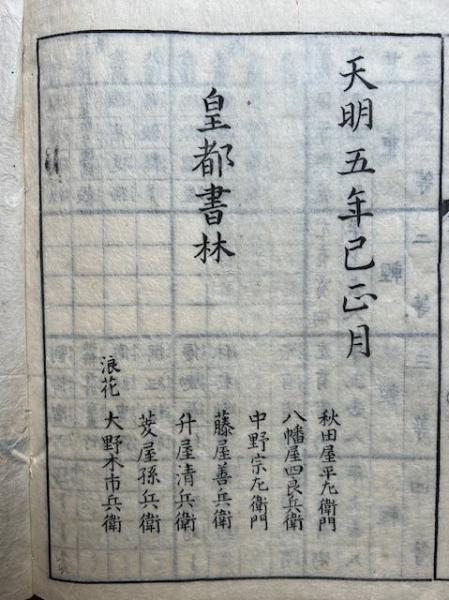 天明五年巳正月
皇都書林
秋田屋平左衛門
八幡屋四良兵衛
中野宗左衛門
藤屋善兵衛
升屋清兵衛
菱屋孫兵衛
浪花 大野木市兵衛